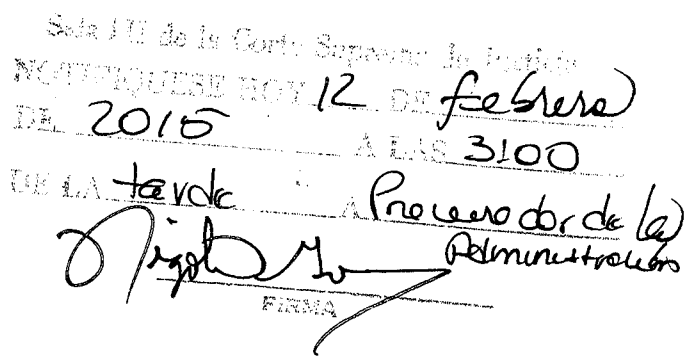 Sala III de la Corte Suprema de Justicia
NOTIFIQUESE HOY 12 DE febrero
DE 2015 A LAS 3:00
DE LA tarde A Procurador de la
Administración
FIRMA